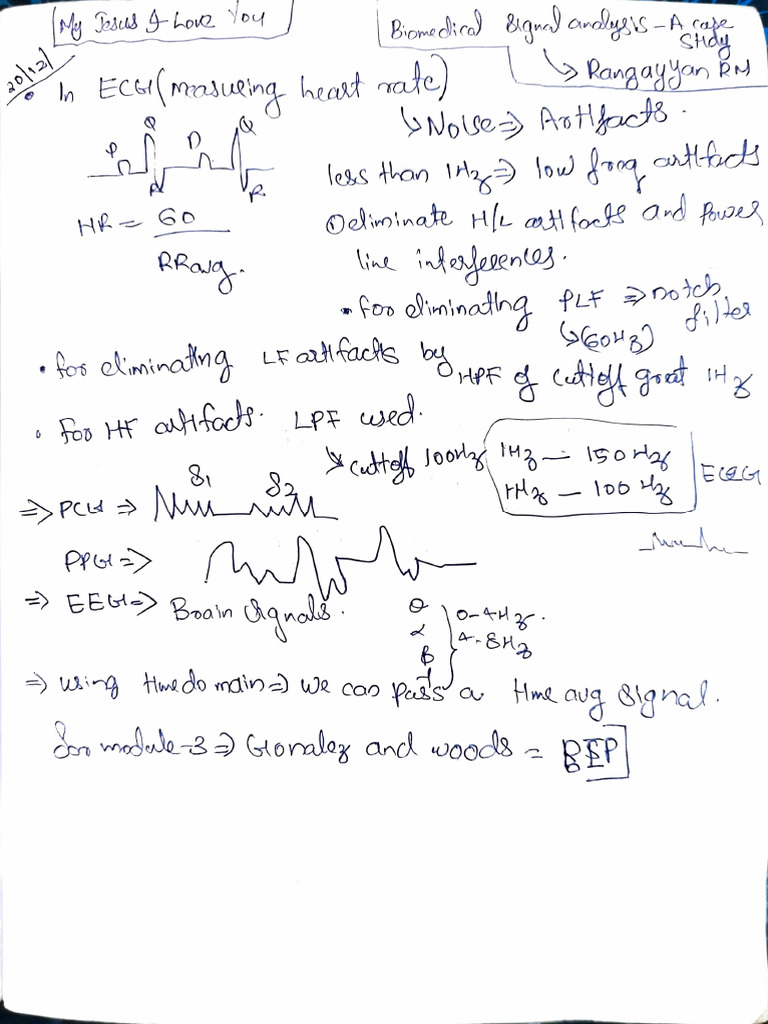 My Jesus I Love You
Biomedical signal analysis - A case
Study
↳ Rangayyan RM
20/12/21
• In ECG (measuring heart rate)
↳ Noise ⇒ Artifacts.
P Q R P Q R
less than 1Hz ⇒ low freq artifacts
HR = 60
RRavg.
① eliminate H/L artifacts and Power
line interferences.
• for eliminating PLF ⇒ notch
filter
↳ (60Hz)
• for eliminating LF artifacts by
HPF of cuttoff great 1Hz
• for HF artifacts. LPF used.
↳ cuttoff 100Hz
1Hz — 150Hz
1Hz — 100Hz
ECG
⇒ PCG ⇒ S1 S2
PPG ⇒
⇒ EEG ⇒ Brain signals.
θ
α
β
0-4Hz.
4-8Hz
⇒ using timedomain ⇒ we can pass a time avg signal.
for module-3 ⇒ Gonalez and woods =